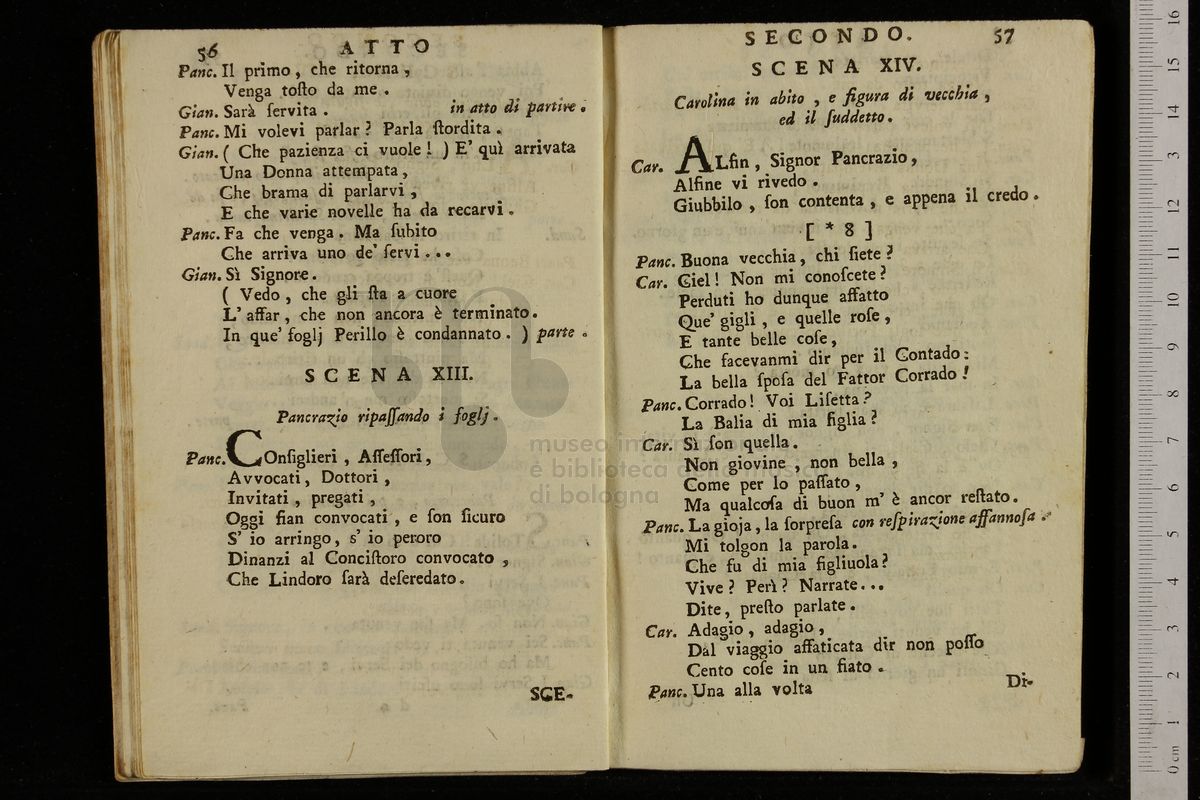 56 ATTO
Panc. Il primo, che ritorna,
Venga toſto da me.
Gian. Sarà ſervita. in atto di partire.
Panc. Mi volevi parlar? Parla ſtordita.
Gian. ( Che pazienza ci vuole! ) E' quì arrivata
Una Donna attempata,
Che brama di parlarvi,
E che varie novelle ha da recarvi.
Panc. Fa che venga. Ma ſubito
Che arriva uno de' ſervi...
Gian. Sì Signore.
( Vedo, che gli ſta a cuore
L' affar, che non ancora è terminato.
In que' foglj Perillo è condannato. ) parte.
SCENA XIII.
Pancrazio ripaſſando i foglj.
Panc. COnſiglieri, Aſſeſſori,
Avvocati, Dottori,
Invitati, pregati,
Oggi ſian convocati, e ſon ſicuro
S' io arringo, s' io peroro
Dinanzi al Conciſtoro convocato,
Che Lindoro ſarà deſeredato.
SCE-
SECONDO. 57
SCENA XIV.
Carolina in abito, e figura di vecchia,
ed il ſuddetto.
Car. ALfin, Signor Pancrazio,
Alfine vi rivedo.
Giubbilo, ſon contenta, e appena il credo.
[ * 8 ]
Panc. Buona vecchia, chi ſiete?
Car. Ciel! Non mi conoſcete?
Perduti ho dunque affatto
Que' gigli, e quelle roſe,
E tante belle coſe,
Che facevanmi dir per il Contado:
La bella ſpoſa del Fattor Corrado!
Panc. Corrado! Voi Liſetta?
La Balia di mia figlia?
Car. Sì ſon quella.
Non giovine, non bella,
Come per lo paſſato,
Ma qualcoſa di buon m' è ancor reſtato.
Panc. La gioja, la ſorpreſa con reſpirazione affannoſa.
Mi tolgon la parola.
Che fu di mia figliuola?
Vive? Perì? Narrate...
Dite, preſto parlate.
Car. Adagio, adagio,
Dal viaggio affaticata dir non poſſo
Cento coſe in un fiato.
Panc. Una alla volta
Di-
museo internazionale
e biblioteca della musica
di bologna
0 cm 1 2 3 4 5 6 7 8 9 10 11 12 13 14 15 16